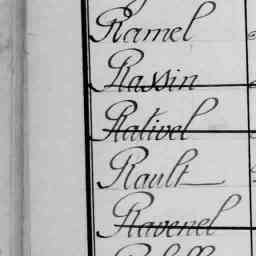 Ramel
Rassin
Rativel
Rault
Ravenel